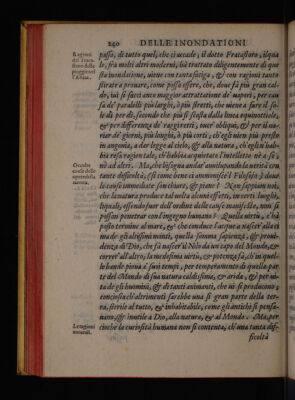 240 DELLE INONDATIONI
Ragioni
del Fracastoro
delle
pioggie nel
l'Africa.
passa, di tutto quel, che ci accade, il dotto Fracastoro, il qua
le, frà molti altri moderni, hà trattato diligentemente di que
sta inondatione, viene con tanta fatica, & con ragioni tanto
stirate a prouare, come possa essere, che, doue fa più gran cal-
do, iui si facci anco maggior attrattatione de' vapori, per cau
sa de' paralelli più larghi, ò più stretti, che viene a fare il so-
le di per dì, secondo che più si scosta dalla linea equinottiale,
& per differenza de' raggi retti, ouer obliqui, & per il ua-
riar de' giorni, più lunghi, ò più corti; ch'egli uien più presto
in angonia, a dar legge al cielo, & alla natura, ch'egli n'hab-
bia resa ragion tale, ch'habbia acquietato l'intelletto nè a sè,
Occulte
cause delle
opere della
natura.
nè ad altri. Ma, che bisogna andar' auuiluppando la uerità con
tante difficoltà, (sì come bene ci ammonisce il Filosofo) doue
le cause immediate sim chiare, & piane? Non sappiam noi,
che la natura produce tal uolta alcuni effetti, in certi luoghi,
liquali, essendo fuor dell'ordine delle cause manifeste, non si
possion penetrar con l'ingegno humano? Quella uirtù, c'hà
posto termine al mare, & che conduce l'acque a nascer' alla ci
ma de gli altissimi monti, quella somma sapienza, & proui-
denza di Dio, che fà nascer'il Nilo da un capo del Mondo, &
correr' all'altro; la medesima uirtù, & potenza fà, ch'in quel-
le bande pioua a' suoi tempi, per temperamento di quella par
te del Mondo di sua natura caldissima, & arida, & per ui-
ta de gli huomini, & di tanti animanti, che ui si producono;
conciosia ch'altrimenti sarebbe una sì gran parte della ter-
ra, sterile al tutto, & inhabitabile, come gli antichi si pensa-
uano, & inutile a Dio, alla natura, & al Mondo. Ma, per
Le ragioni
naturali.
cioche la curiosità humana non si contenta, ch'una tanta dif-
ficoltà